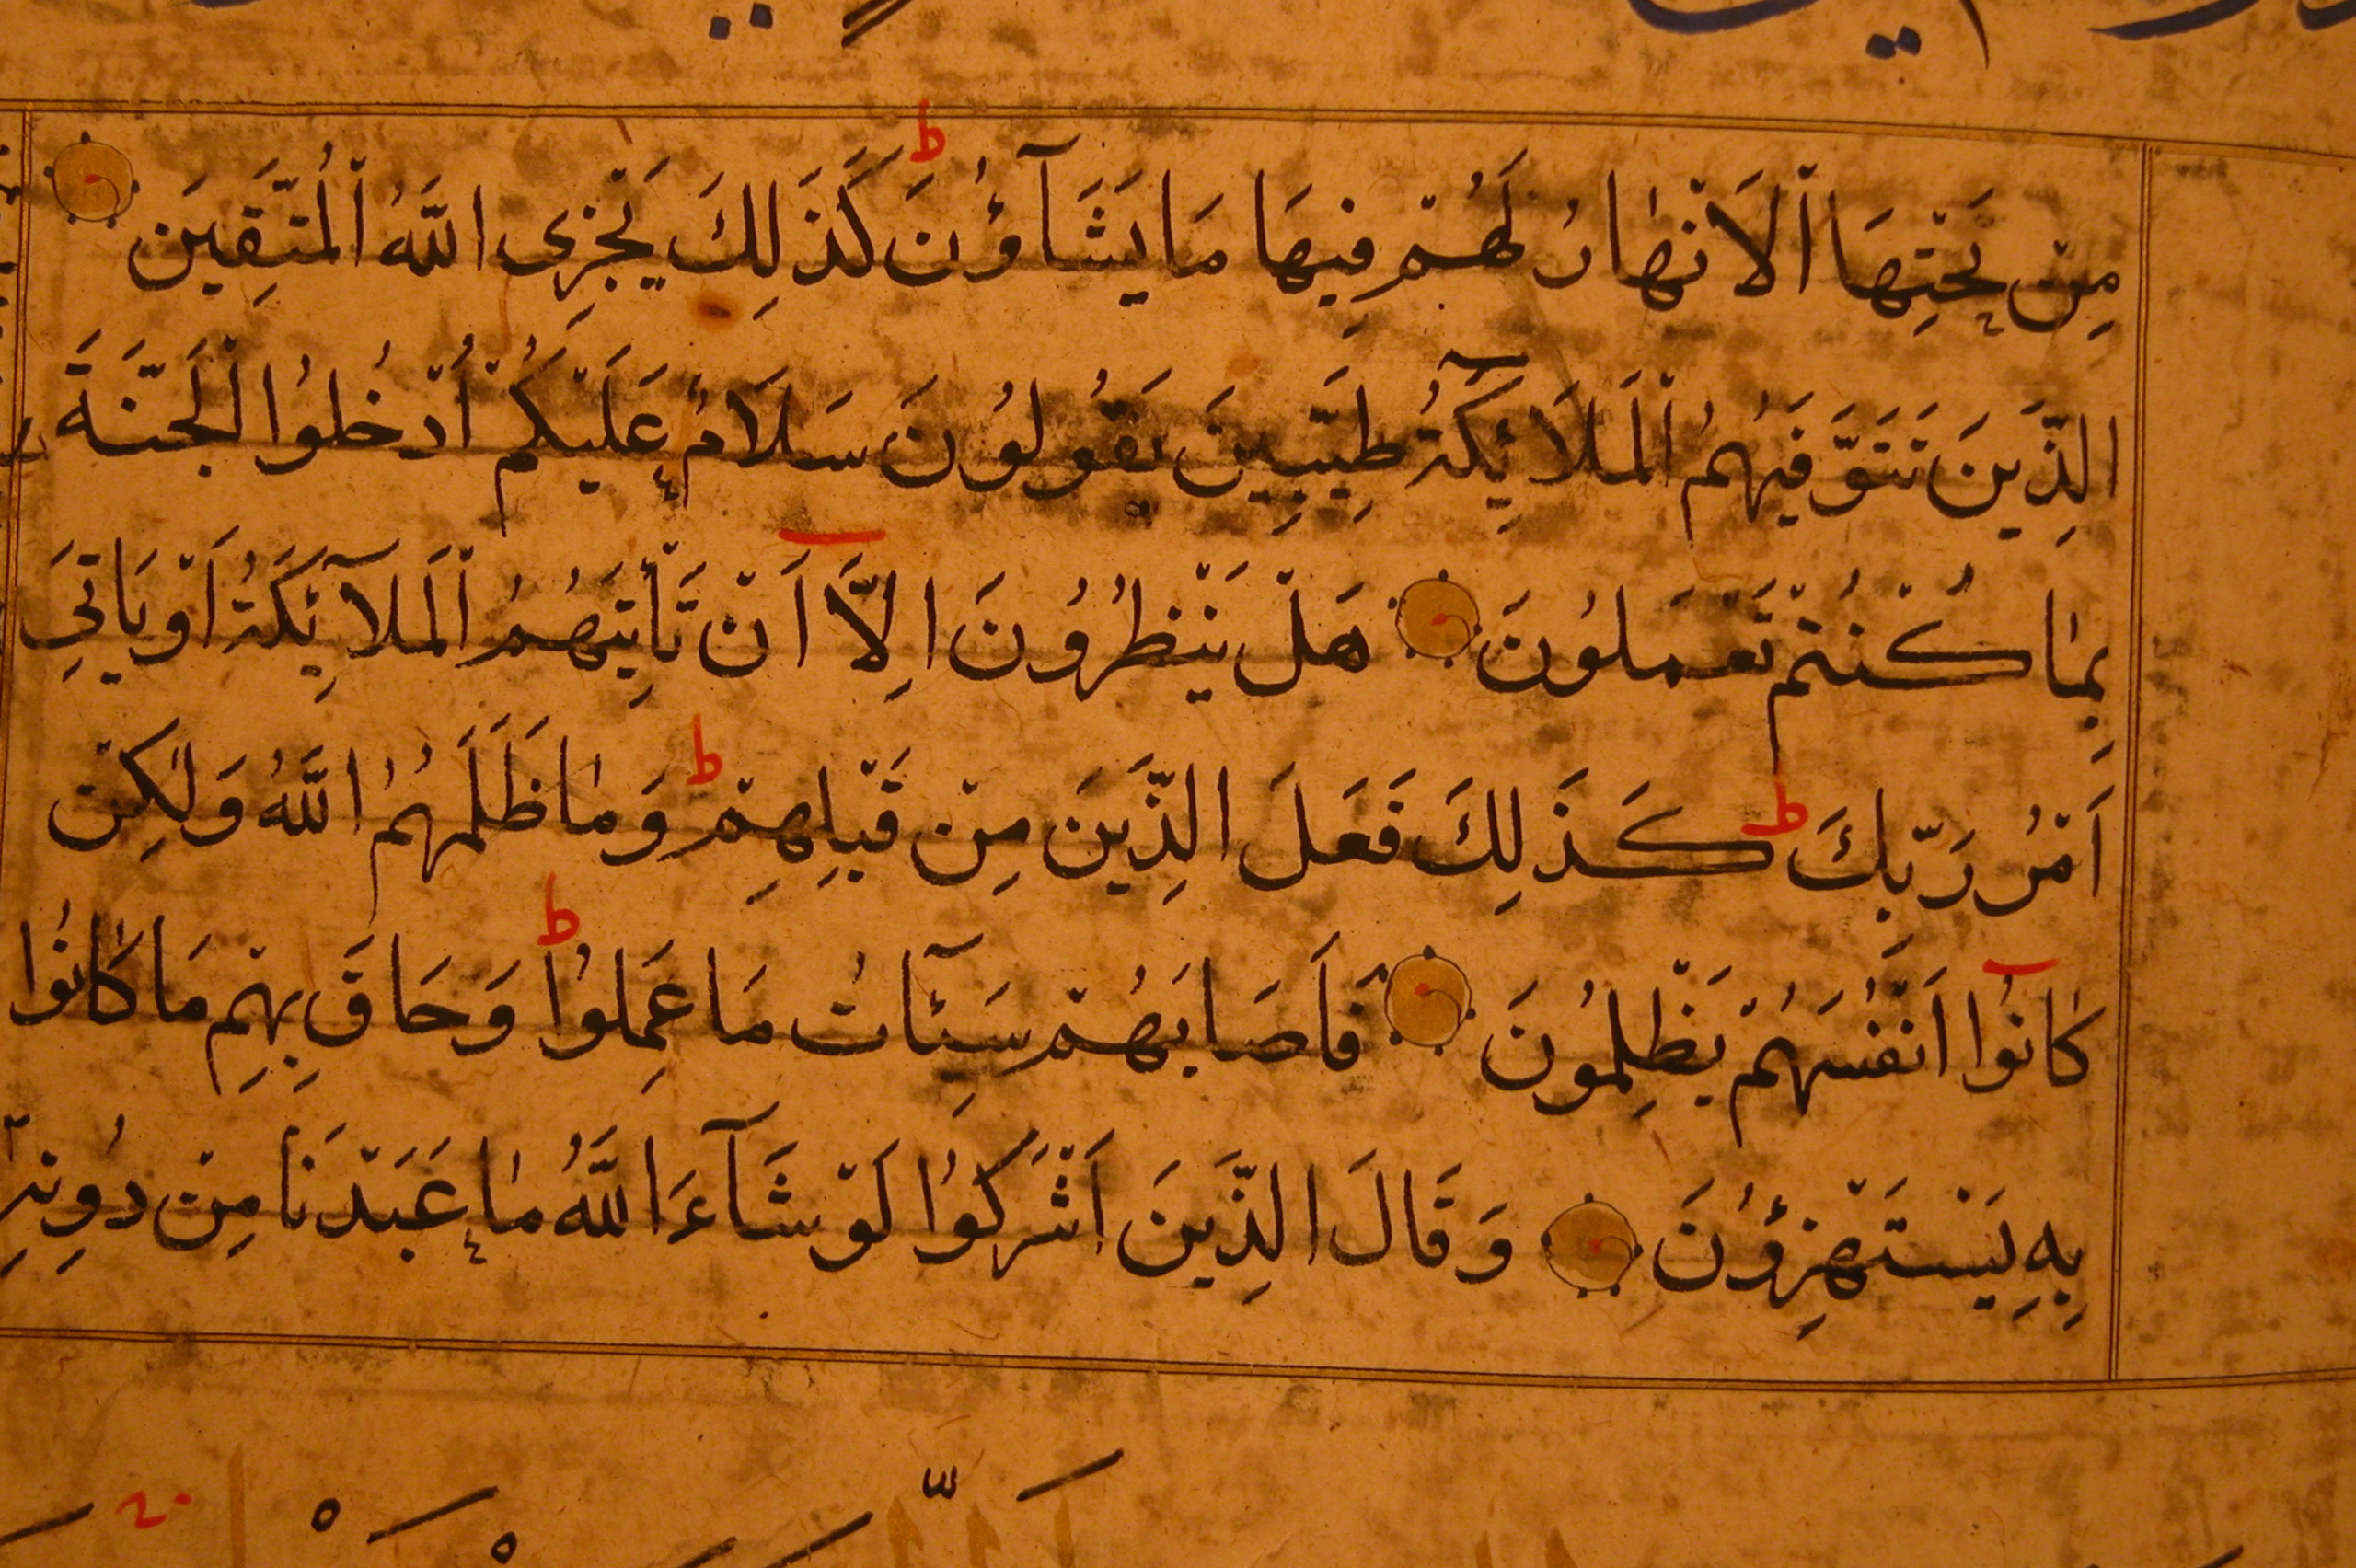 مِنْ تَحْتِهَا الْاَنْهَارُ لَهُمْ فِيهَا مَا يَشَآؤُنَ ط كَذَلِكَ يَجْزِى اللَّهُ الْمُتَّقِيَن
الَّذِينَ تَتَوَفَّيهُمُ الْمَلَآئِكَةُ طَيِّبِينَ يَقُولُونَ سَلَامٌ عَلَيْكُمْ اُدْخُلُوا الْجَنَّةَ
بِمَا كُنْتُمْ تَعْمَلُونَ هَلْ يَنْظُرُونَ اِلَّا اَنْ تَأْتِيَهُمُ الْمَلَآئِكَةُ اَوْ يَاتِىَ
اَمْرُ رَبِّكَ ط كَذَلِكَ فَعَلَ الَّذِينَ مِنْ قَبْلِهِمْ ط وَمَا ظَلَمَهُمُ اللَّهُ وَلَكِنْ
كَانُوا اَنْفُسَهُمْ يَظْلِمُونَ فَاَصَابَهُمْ سَيِّئَآتُ مَا عَمِلُوا ط وَحَاقَ بِهِمْ مَا كَانُوا
بِهِ يَسْتَهْزِؤُنَ وَقَالَ الَّذِينَ اَشْرَكُوا لَوْ شَآءَ اللَّهُ مَا عَبَدْنَا مِنْ دُونِهِ